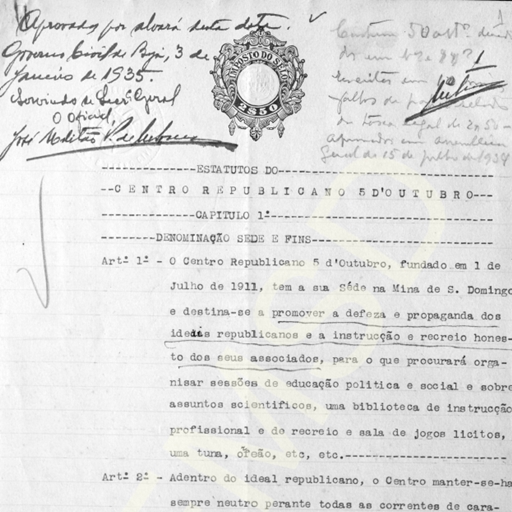 Aprovados por alvará desta data.
Governo Civil de Beja, 3 de
Janeiro de 1935.
Servindo de Secr. Geral
O Oficial,
José
IMPOSTO DO SELO
2$50
Geral de 15 de julho de 1934
--------------ESTATUTOS DO--------------
--CENTRO REPUBLICANO 5 D'OUTUBRO---
--------------CAPITULO 1º--------------
--------DENOMINAÇÃO SEDE E FINS--------
Artº 1º - O Centro Republicano 5 d'Outubro, fundado em 1 de
Julho de 1911, tem a sua Séde na Mina de S. Domingo
e destina-se a promover a defeza e propaganda dos
ideais republicanos e a instrucção e recreio hones-
to dos seus associados, para o que procurará orga-
nisar sessões de educação politica e social e sobre
assuntos scientificos, uma biblioteca de instrucção
profissional e de recreio e sala de jogos licitos,
uma tuna, orfeão, etc, etc.-----------------------
Artº 2º - Adentro do ideal republicano, o Centro manter-se-ha
sempre neutro perante todas as correntes de cara-